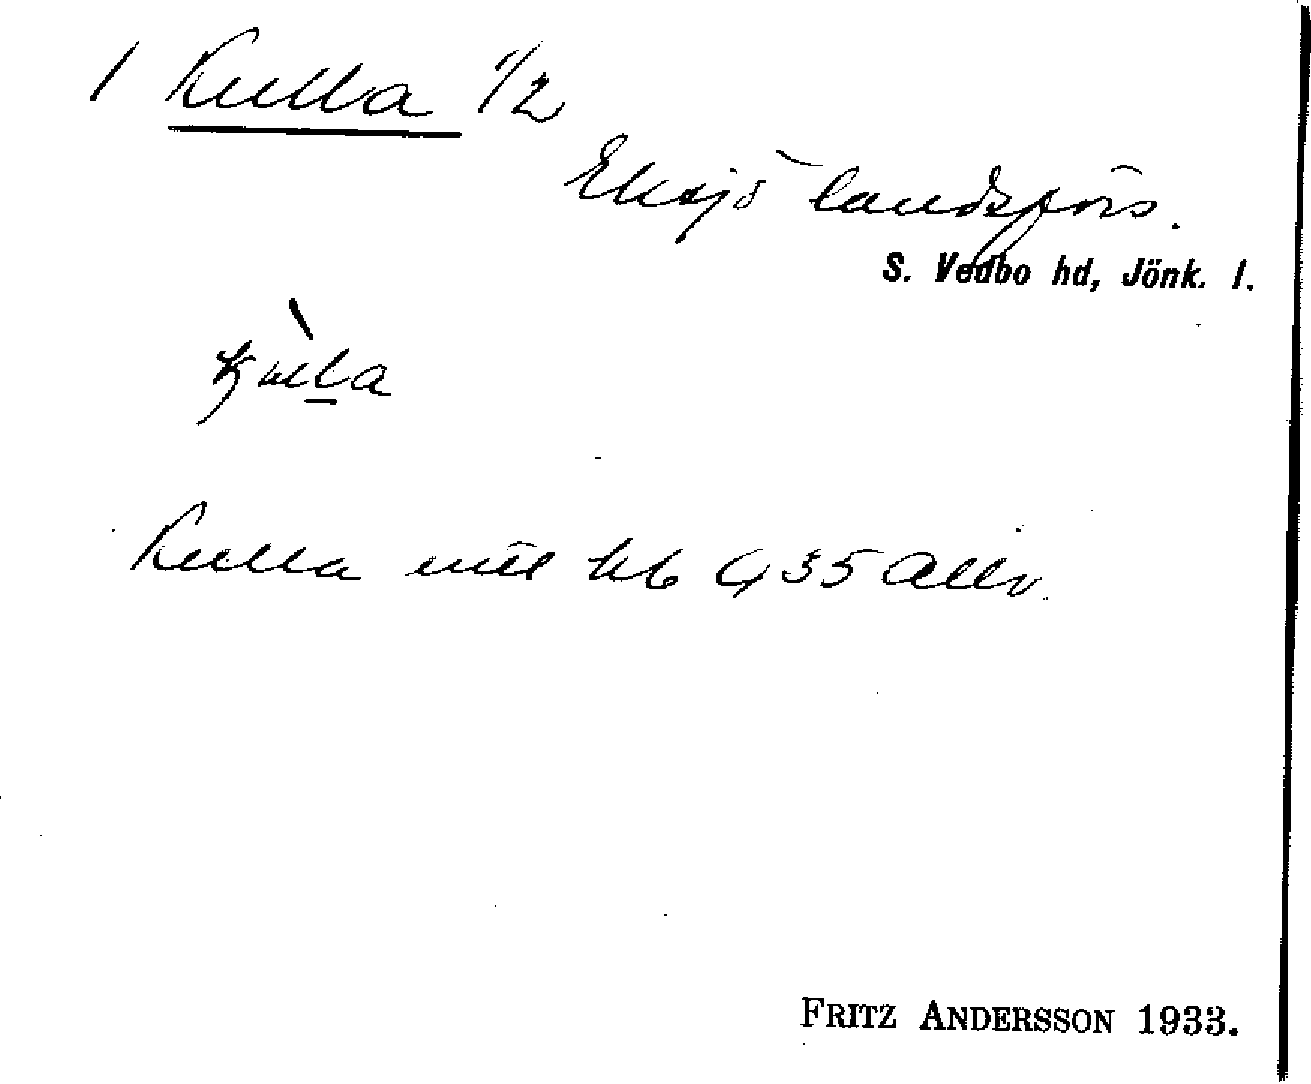 1 Kulla 1/2
Eksjö landsförs.
S. Vedbo hd, Jönk. l.
Kulla
Kulla 0,35
FRITZ ANDERSSON 1933.